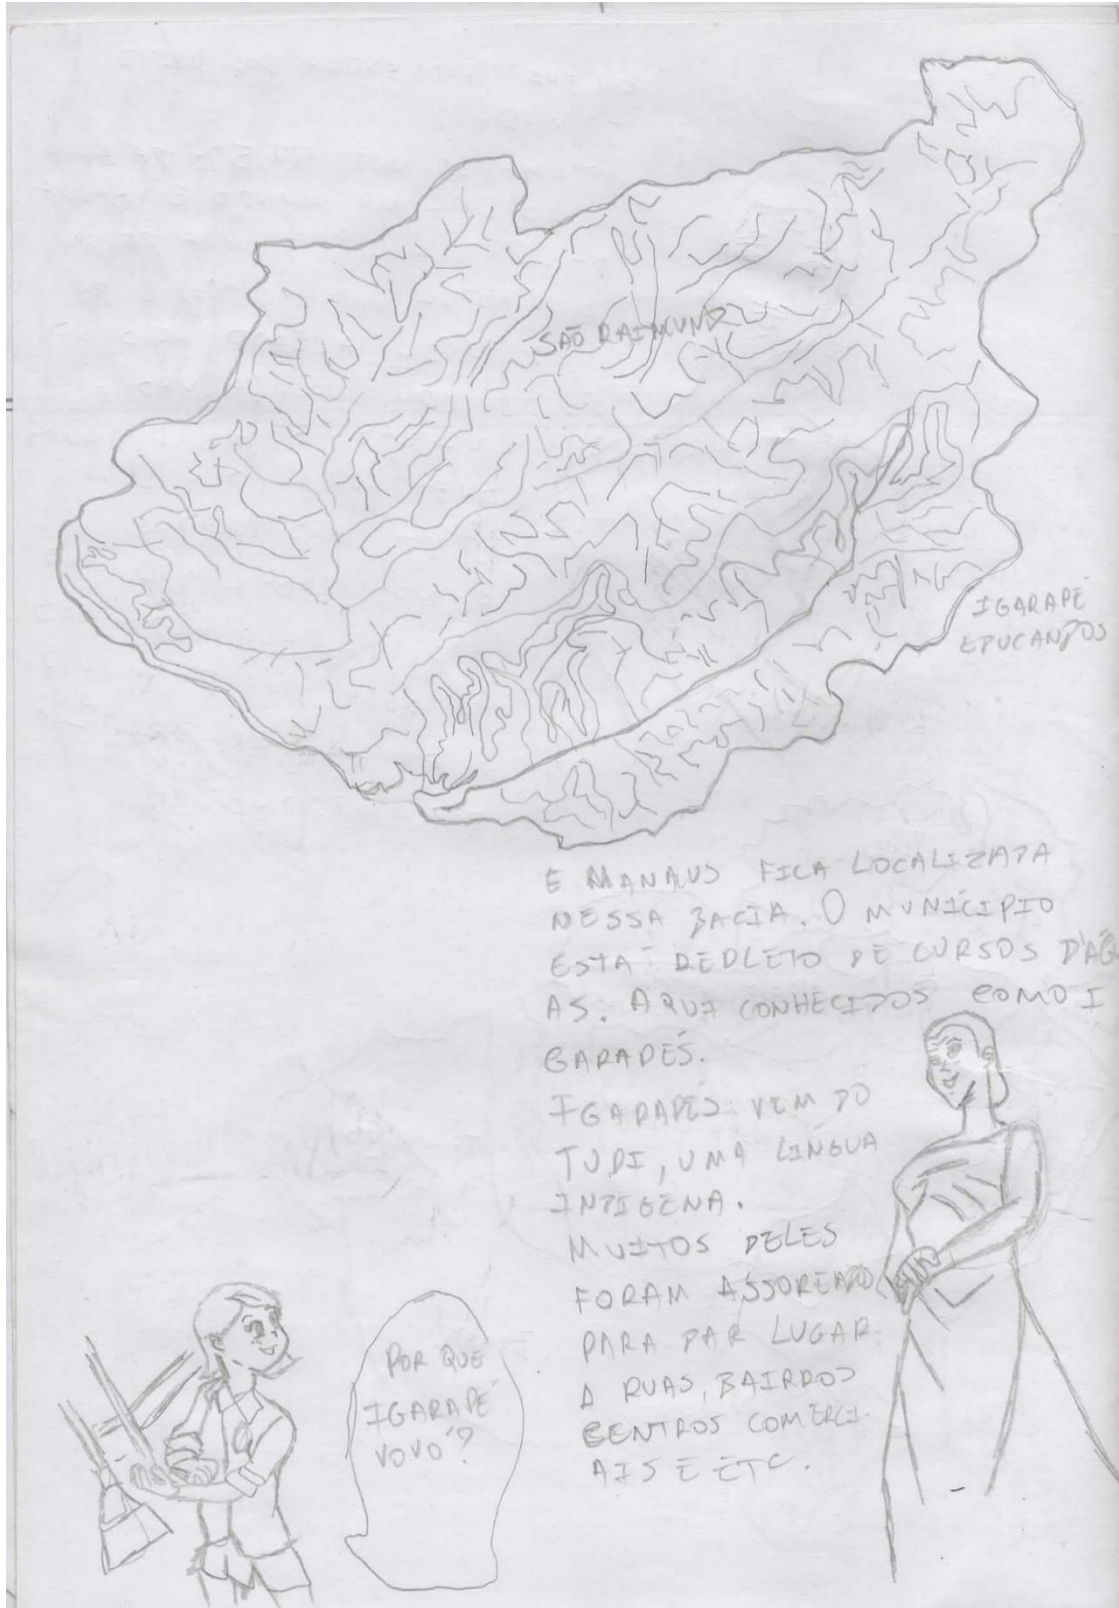 SÃO RAIMUND
IGARAPÉ
EDUCANDOS
E MANAUS FICA LOCALIZADA
NESSA BACIA. O MUNICÍPIO
ESTÁ REPLETO DE CURSOS D'ÁGU
AS. AQUI CONHECIDOS COMO I
GARAPÉS.
IGARAPÉS VEM DO
TUPI, UMA LINGUA
INDIGENA.
MUITOS DELES
FORAM ASSOREADO
PARA DAR LUGAR
A RUAS, BAIRROS
CENTROS COMERCI
AIS E ETC.
POR QUE
IGARAPÉ
VOVÓ?